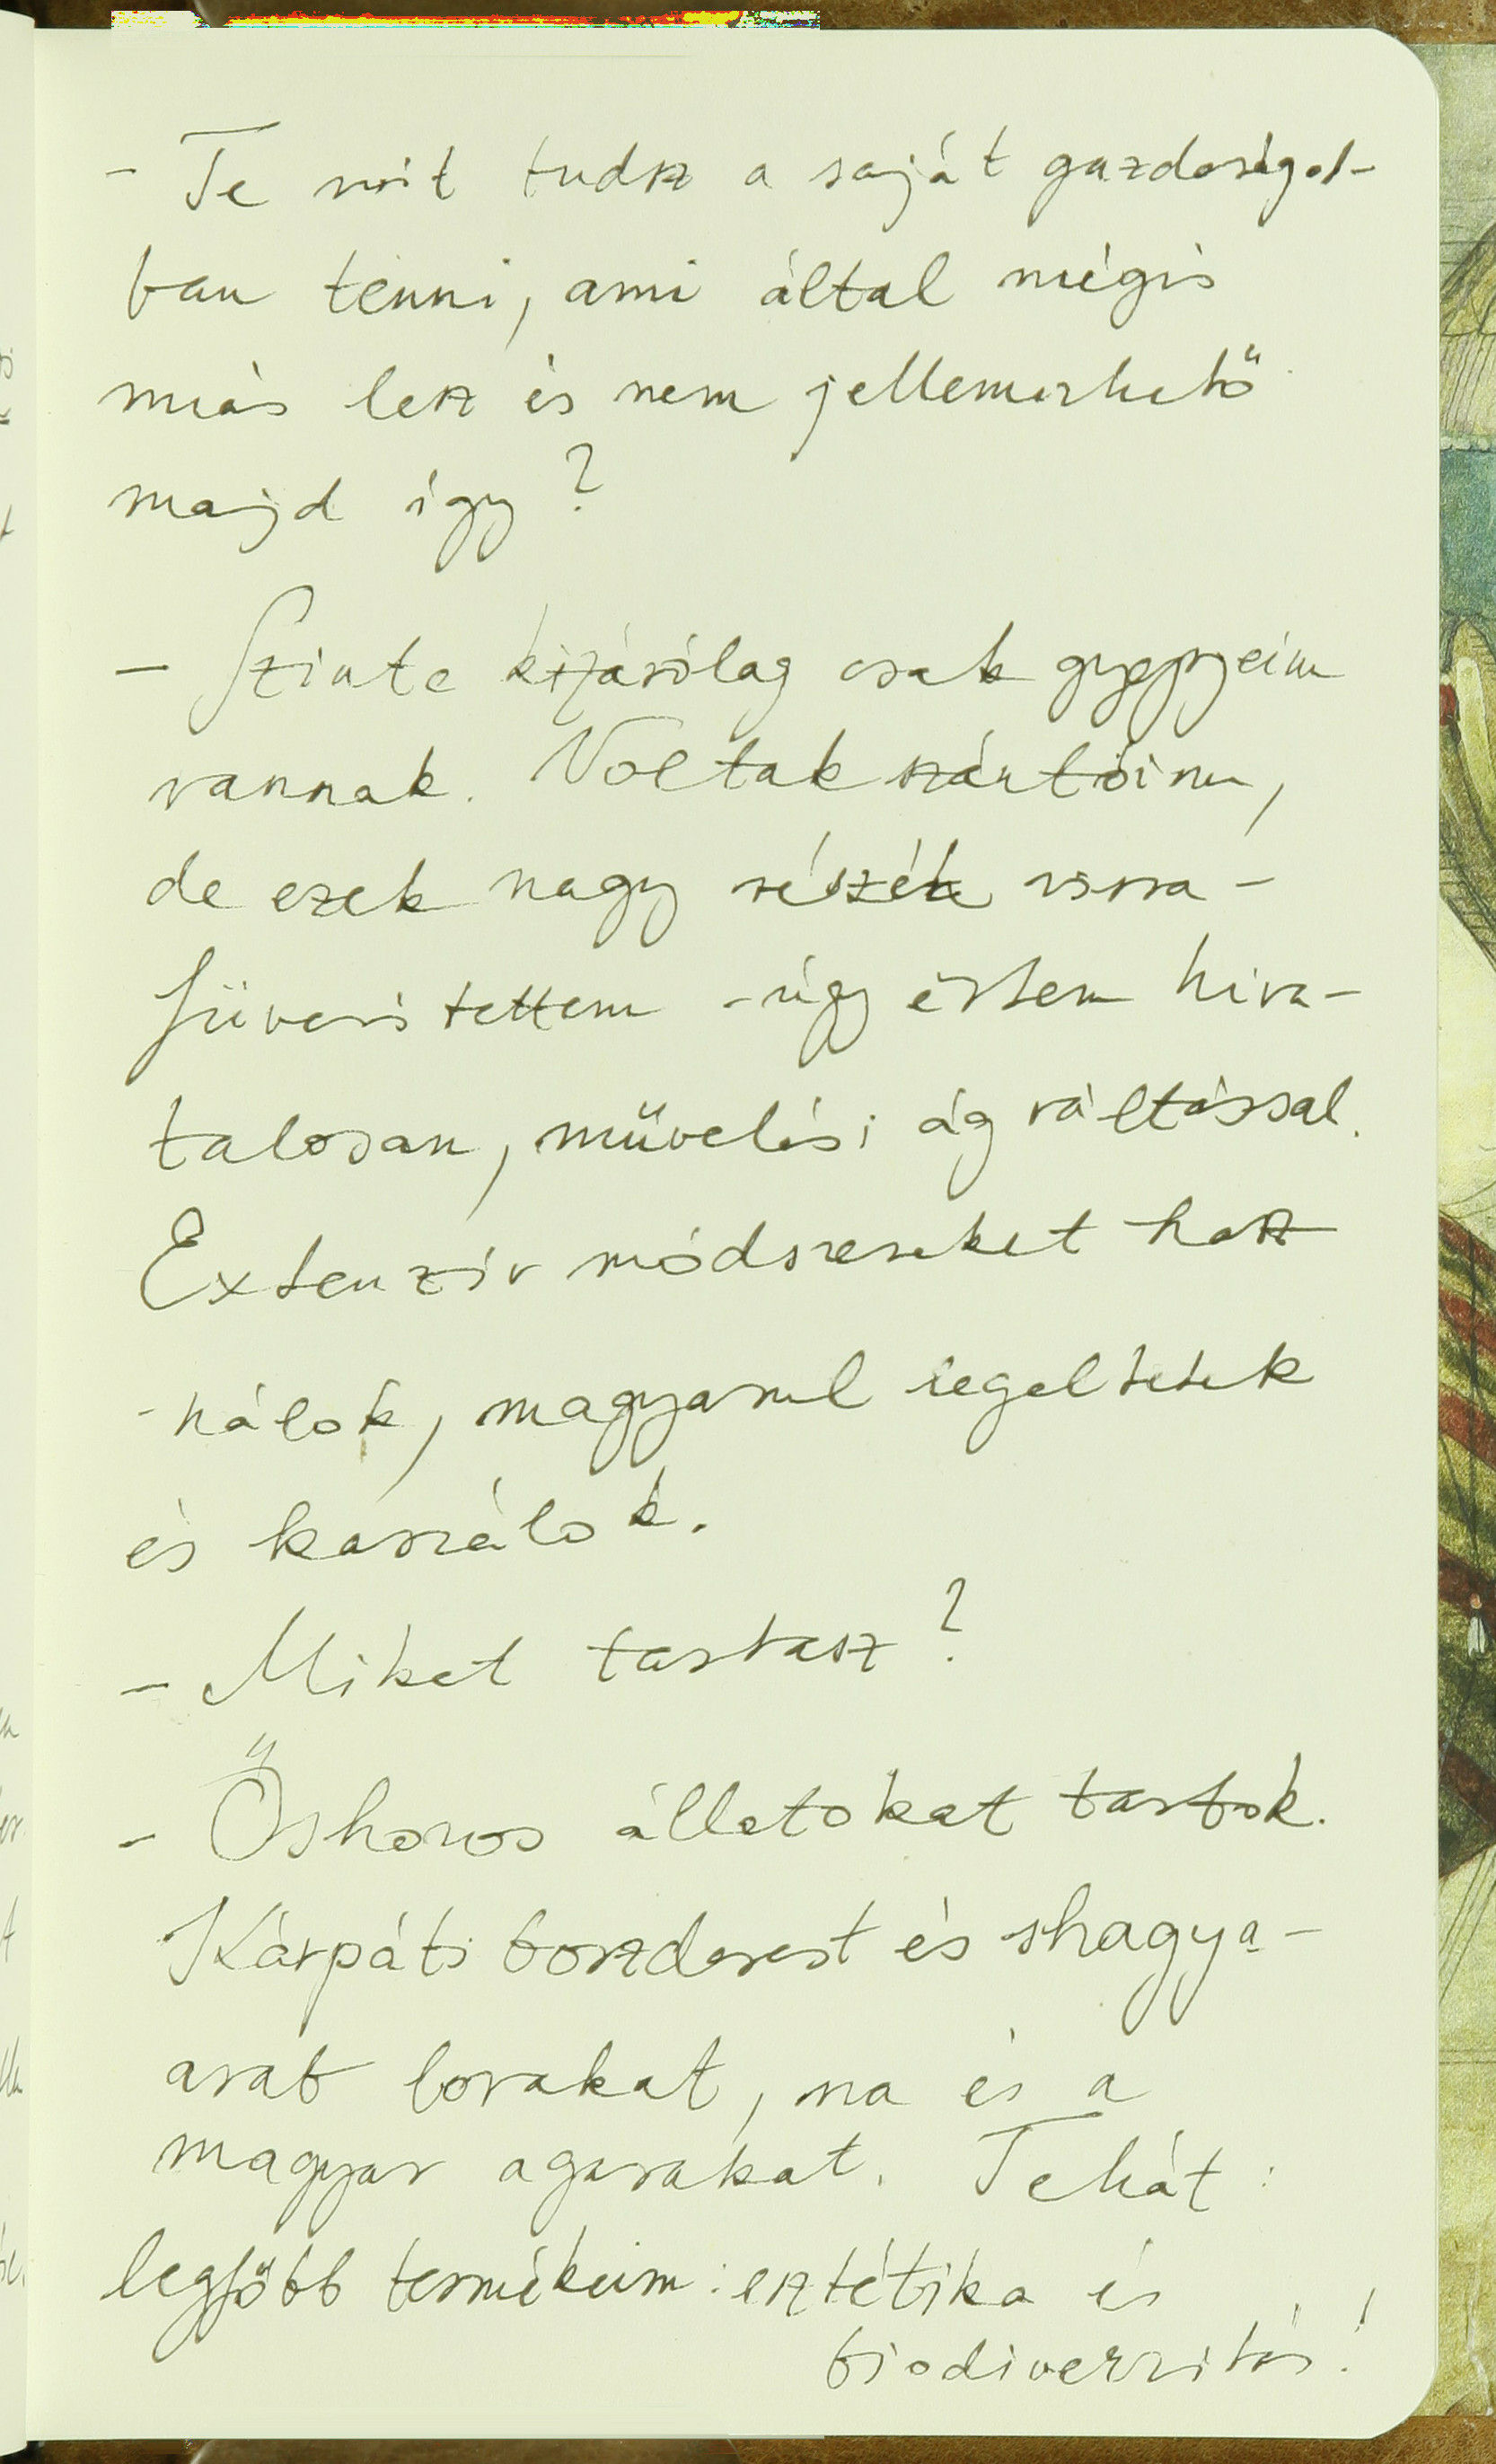 - Te mit tudsz a saját gazdaságod-
ban tenni, ami által mégis
más lesz és nem jellemezhető
majd így?
- Szinte kizárólag csak gyepjeim
vannak. Voltak szántóim,
de ezek nagy részét vissza-
füvesítettem - úgy értem hiva-
talosan, művelési ág váltással.
Extenzív módszereket hasz
-nálok, magyarul legeltetek
és kaszálok.
- Miket tartasz?
- Őshonos állatokat tartok.
Kárpáti borzderest és shagya-
arab lovakat, na és a
magyar agarakat. Tehát:
legfőbb termékeim: esztétika és
biodiverzitás!